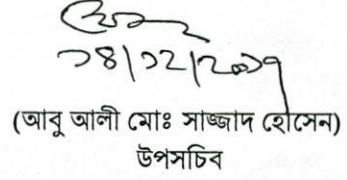 ১৪/১২/২০১৭
(আবু আলী মোঃ সাজ্জাদ হোসেন)
উপসচিব